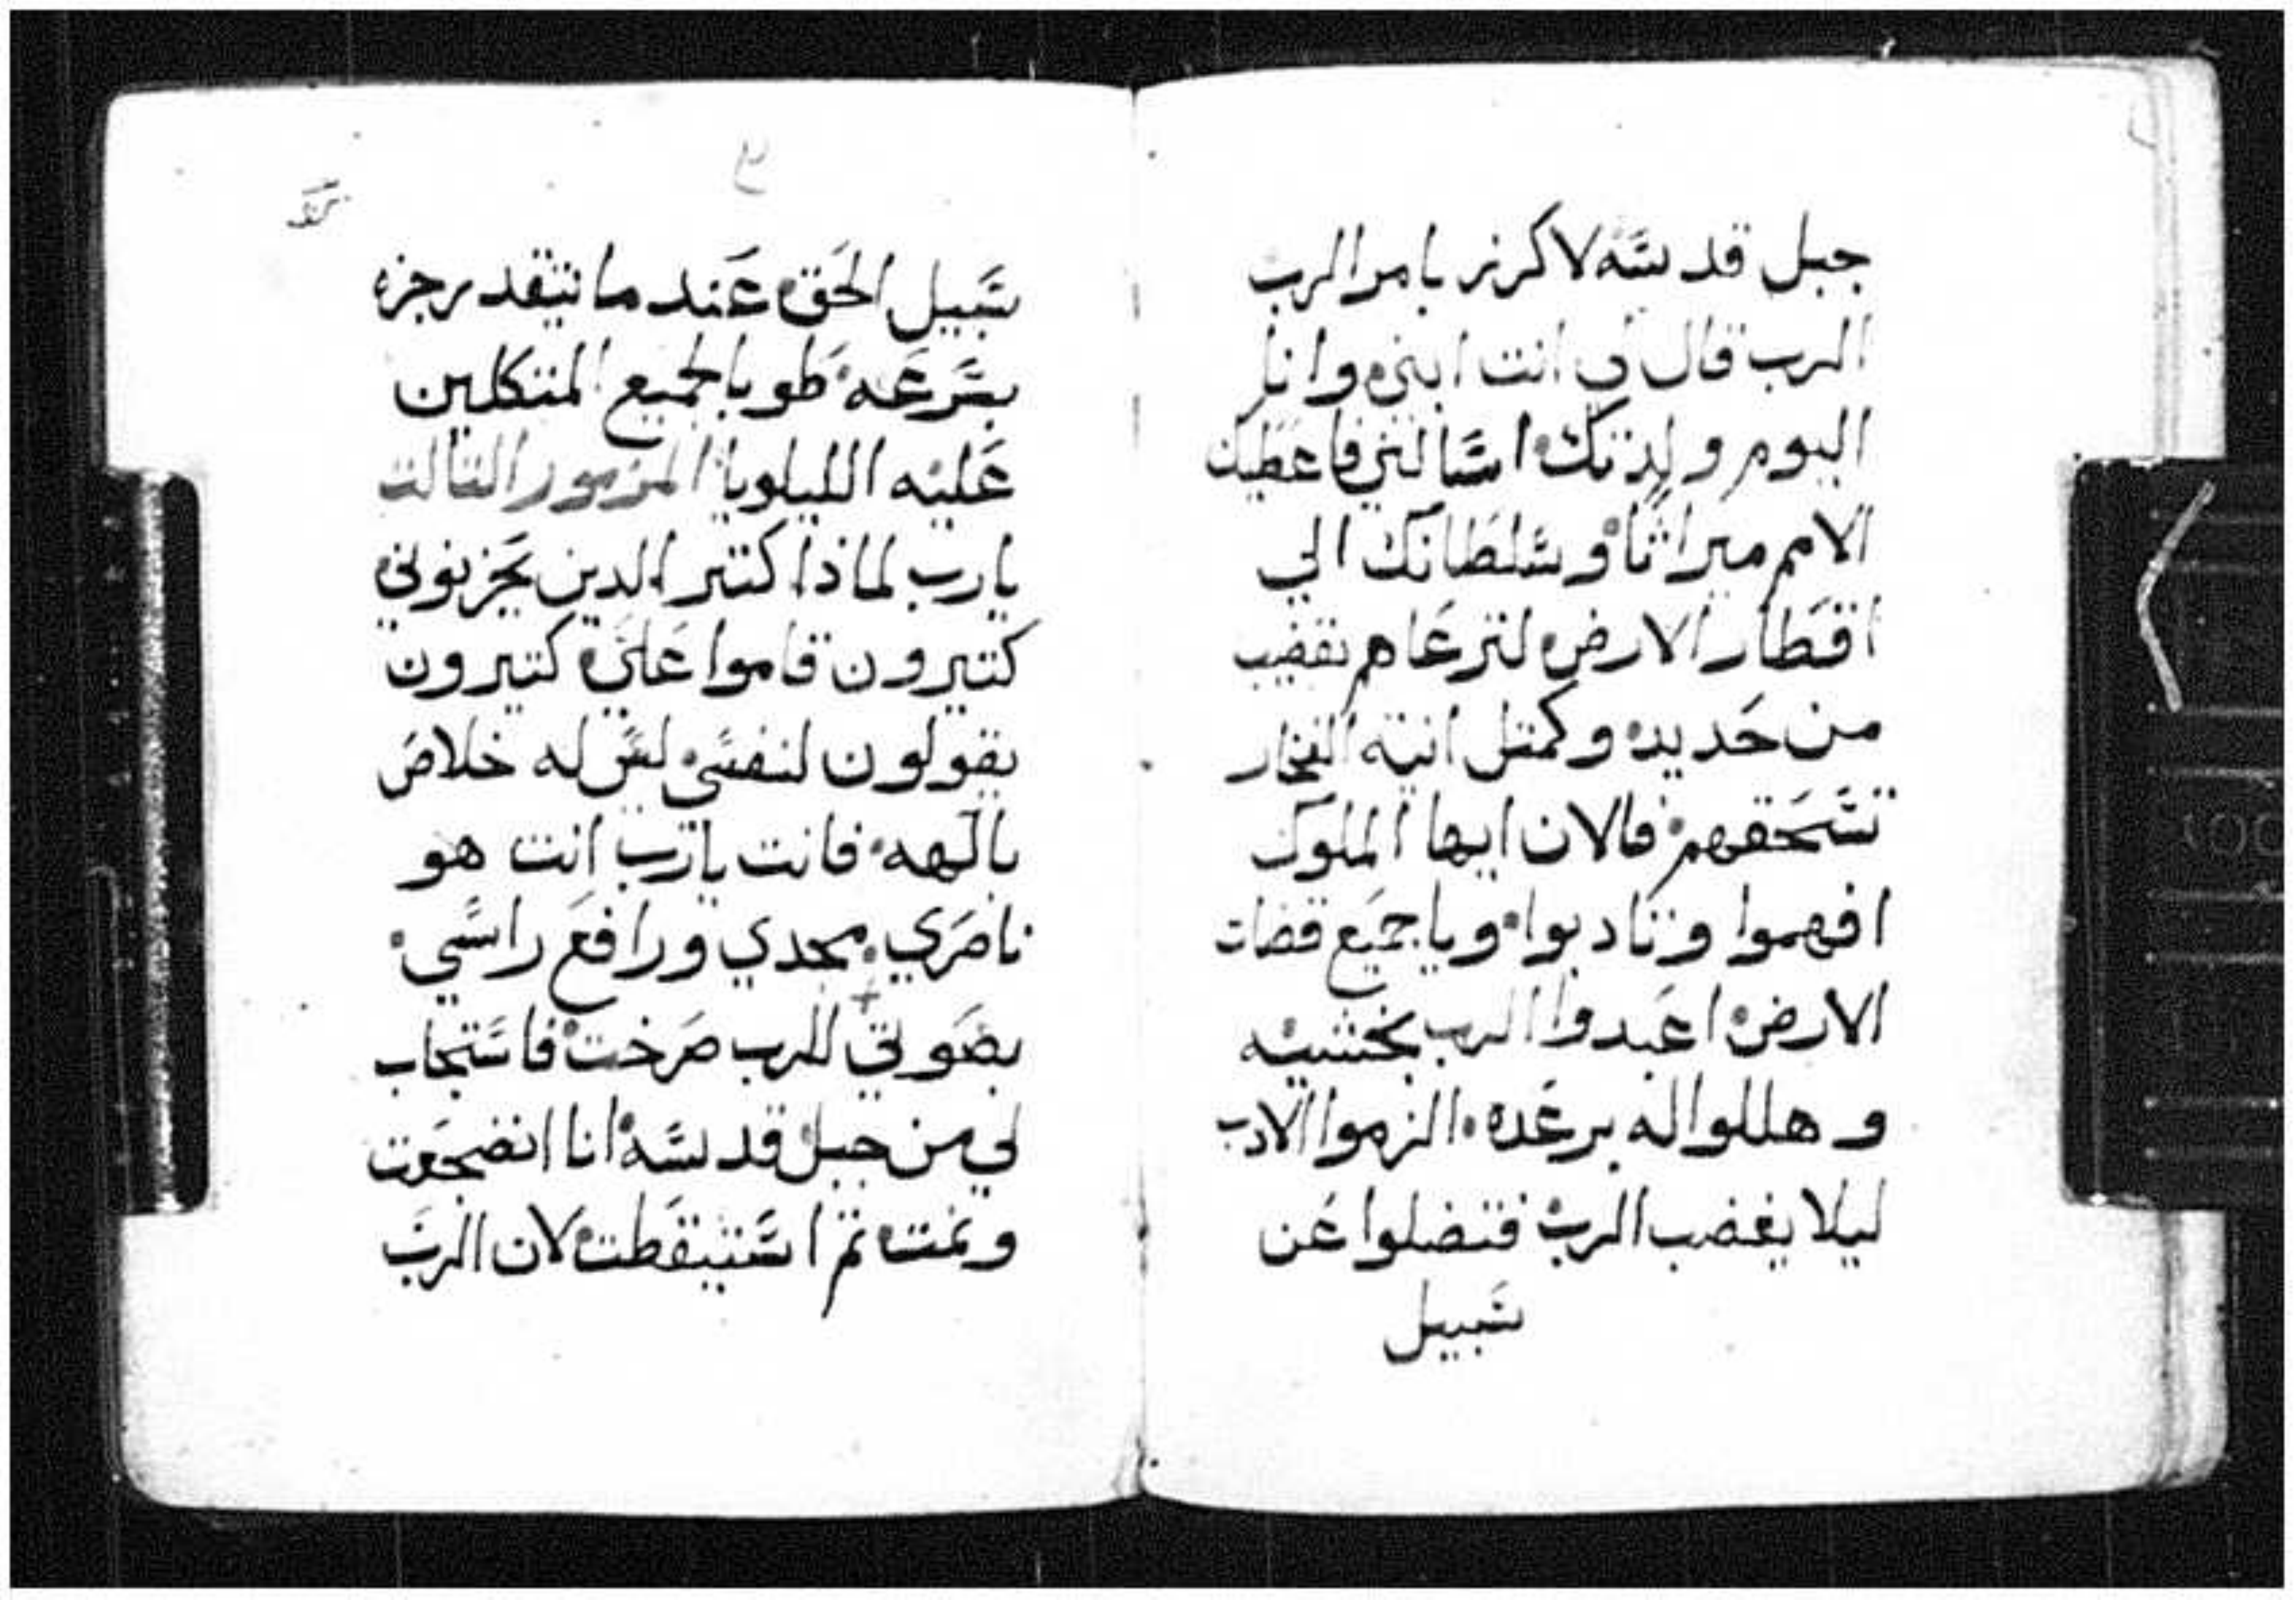 جبل قدسه لاكرز بامر الرب
الرب قال لي انت ابني وانا
اليوم ولدتك اسالني فاعطيك
الامم ميراثا وسلطانك الي
اقطار الارض لترعاهم بقضيب
من حديد وكمتل انية الفخار
تسحقهم فالان ايها الملوك
افهموا وتادبوا ويا جميع قضات
الارض اعبدوا الرب بخشيه
وهللوا له برعده الزموا الادب
ليلا يغضب الرب فتضلوا عن
سبيل
سبيل الحق عند ما تتقد رجزه
بسرعه طوبا لجميع المتكلين
عليه الليلويا المزمور التالت
يارب لماذا كتير الدين يحزنوني
كتيرون قاموا علي كتيرون
يقولون لنفسي ليس له خلاص
بالهه فانت يارب انت هو
ناصري مجدي ورافع راسي
بصوتي للرب صرخت فاستجاب
لي من جبل قدسه انا انضجعت
ونمت تم استيقطت لان الرب